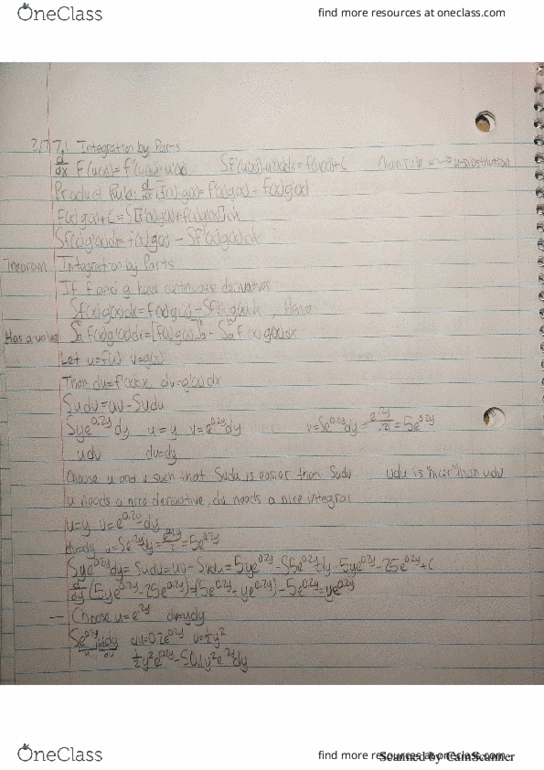 OneClass
find more resources at oneclass.com
7.1 Integration by Parts
d/dx F(u(x))=f'(u(x))·u'(x) ∫f'(u(x))·u'(x)dx=f(u(x))+C Chain Rule u-substitution
Product Rule: d/dx [f(x)·g(x)]=f'(x)g(x)+f(x)g'(x)
f(x)g(x)+C=∫[f'(x)g(x)+f(x)g'(x)]dx
∫f(x)g'(x)dx=f(x)g(x)-∫f'(x)g(x)dx
Theorem Integration by Parts
If f and g have continuous derivatives
∫f(x)g'(x)dx=f(x)g(x)-∫f'(x)g(x)dx,
Has a value ∫f(x)g'(x)dx=[f(x)g(x)]-∫f'(x)g(x)dx
Let u=f(x) v=g(x)
Then du=f'(x)dx, dv=g'(x)dx
∫udv=uv-∫vdu
∫ye^0.2y dy u=y v=e^0.2y dy v=∫e^0.2y dy=e^.2y/.2=5e^0.2y
udv du=dy
Choose u and v such that ∫vdu is easier than ∫udv vdu is "nicer" than udv
u needs a nice derivative, dv needs a nice integral
u=y v=e^0.2y dy
du=dy v=∫e^.2y dy=e^.2y/.2=5e^0.2y
∫ye^0.2y dy=∫udv=uv-∫vdu=5ye^0.2y-∫5e^0.2y dy=5ye^0.2y-25e^0.2y+C
d/dy(5ye^0.2y-25e^0.2y)=(5e^0.2y+ye^0.2y)-5e^0.2y=ye^0.2y
— Choose u=e^.2y dv=ydy
∫e^0.2y ydy du=0.2e^0.2y v=½y²
u dv
½y²e^0.2y-∫0.1y²e^.2y dy
OneClass
find more resources at oneclass.com
Scanned by CamScanner